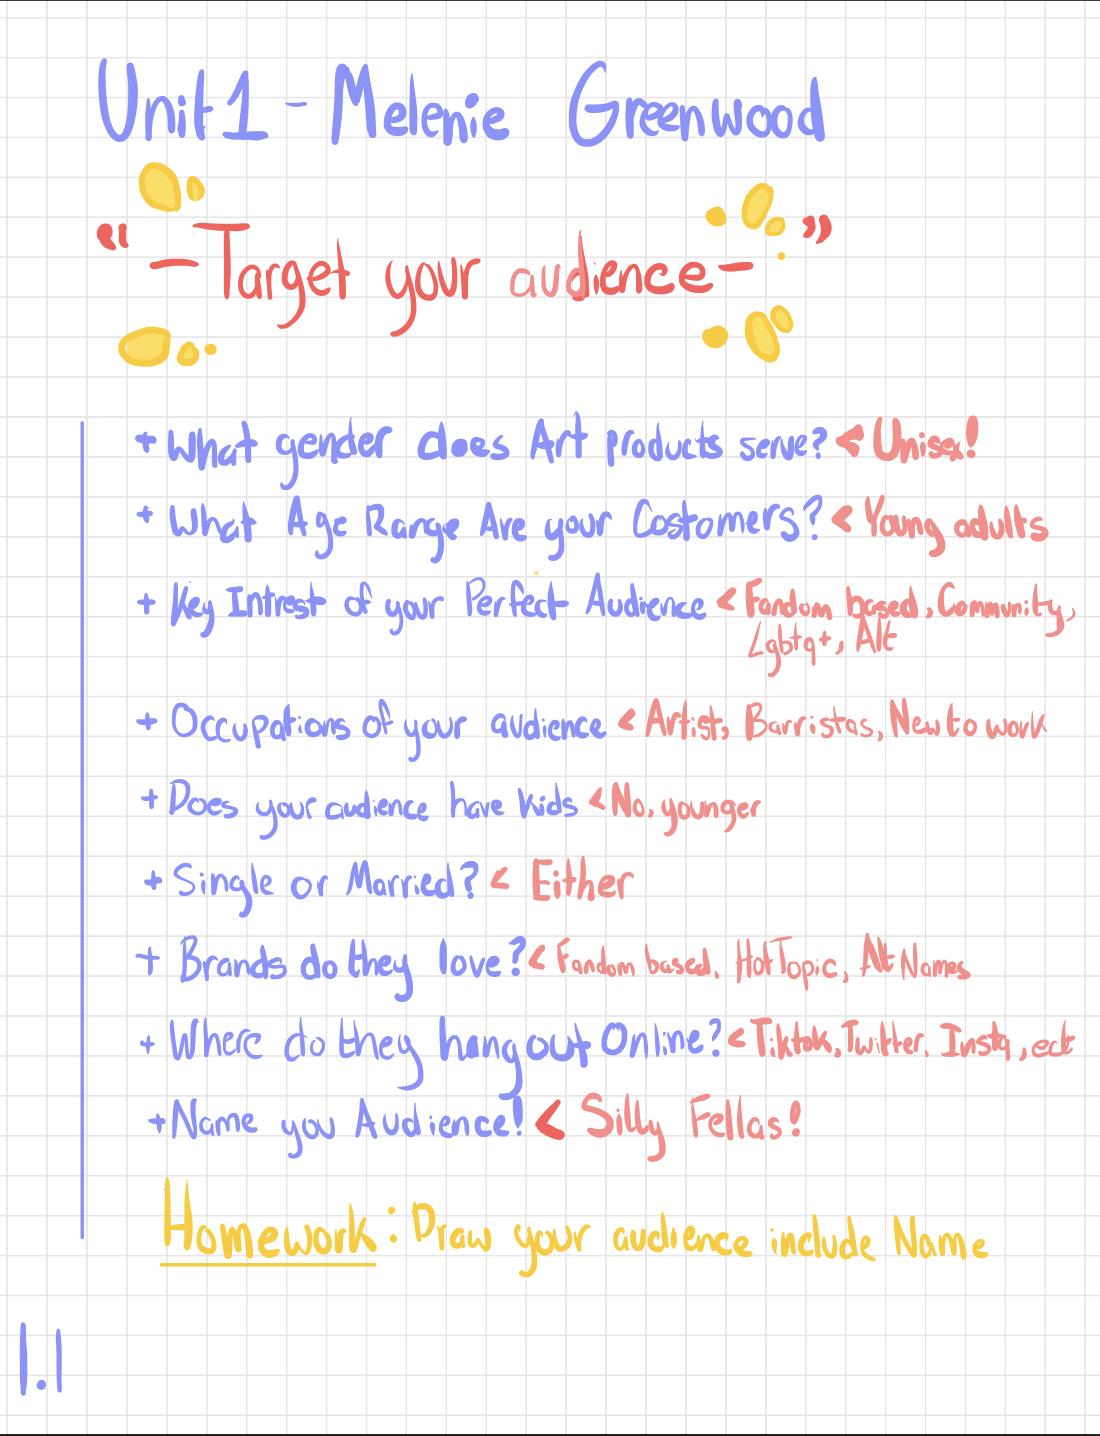 Unit 1 - Melenie Greenwood
“ - Target your audience - ”
+ What gender does Art products serve? < Unisex!
+ What Age Range Are your Costomers? < Young adults
+ Key Intrest of your Perfect Audience < Fandom based, Community,
Lgbtq+, Alt
+ Occupations of your audience < Artist, Barristas, New to work
+ Does your audience have kids < No, younger
+ Single or Married? < Either
+ Brands do they love? < Fandom based, Hot Topic, Alt Names
+ Where do they hang out Online? < Tiktok, Twitter, Insta, ect
+ Name you Audience! < Silly Fellas!
Homework: Draw your audience include Name
1.1